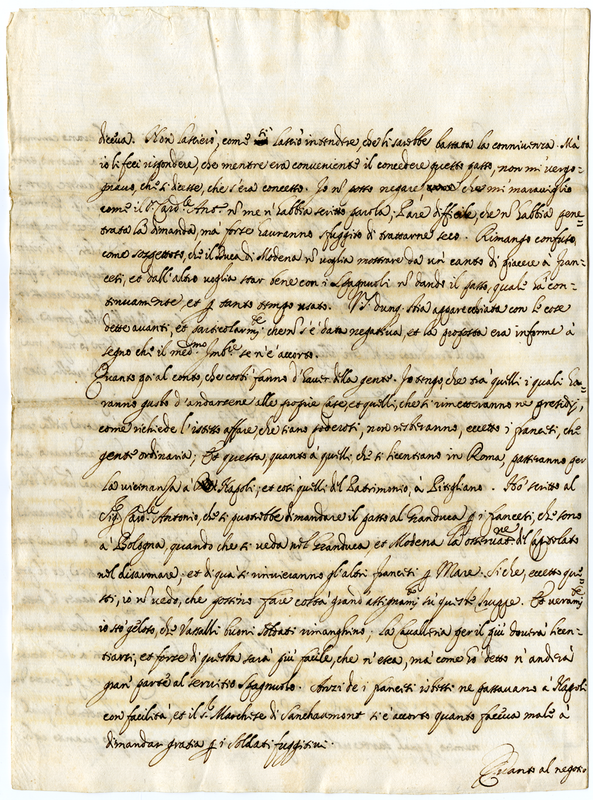 diceva. Non lasciò, come si lasciò intendere, che si sarebbe bastata la connivenza. Mà
io li feci rispondere, che mentre era conveniente il concedere questo passo, non mi vergo=
gnavo, che si dicesse, che s'era concesso. Io n̄ sotto negare che mi maraviglio
come il S.r Card.le Ant.o n̄ me n'habbia scritto parola; Pare difficile, che n̄ habbia pene=
trato la dimanda, mà forse hauranno sfuggito di trattarne seco. Rimango confuso,
come soggetto, che il Duca di Modena n̄ voglia mostrare da un canto di piacere à fran=
cesi, et dall'altro voglia star bene con i Spagnuoli n̄ dando il passo, quale và con=
tinuamente, et p tanto tempo usato. V.S. dunq. stia apparecchiata con le cose
dette avanti, et particolarm.te che n̄ s'è data negativa, et la proposta era informe à
segno che il med.mo Imb.re se n'è accorto.
Quanto poi al conto, che costì fanno d'haver della gente. Io tengo, che trà quelli i quali ha=
vranno gusto d'andarsene alle proprie case, et quelli, che si rimetteranno ne presidij,
come richiede l'istesso affare che siano poderosi, non resteranno, eccetto i francesi, che
gente ordinaria; Et questa, quanto à quelli che si licentiano in Roma, passeranno per
la vicinanza à Napoli; et così quelli del Patrimonio, à Pitigliano. Hò scritto al
Sig.r Card.le Antonio, che si potrebbe dimandare il passo al Granduca p i francesi, che sono
à Bologna, quando che si veda nel Granduca et Modena la osservat.ne del capitolato
nel disarmare; et di quà si rinvieranno gl'altri francesi p Mare. Si che, eccetto que=
sti, io n̄ vedo, che possino fare costà grand'assegnam.to sù queste truppe. Et veram.te
io stò geloso, che Vassalli buoni soldati rimanghino; la Cavalleria per il più dovrà licen=
tiarsi, et forse di questa sarà più facile, che n'esca, mà come hò detto n'andrà
gran parte al servitio Spagnuolo. Anzi de i francesi istessi ne passavano à Napoli
con facilità, et il S.r Marchese di Sanchaumont s'è accorto quanto faceva male à
dimandar gratia p i soldati fuggitivi.
Quanto al negotio